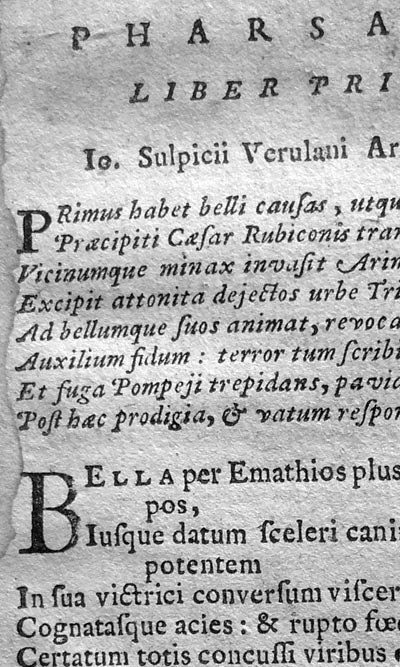 P H A R S A
L I B E R P R I
Io. Sulpicii Verulani Ar
PRimus habet belli cauſas, utqu
Præcipiti Cæſar Rubiconis tran
Vicinumque minax invaſit Arin
Excipit attonita dejectos urbe Tri
Ad bellumque ſuos animat, revoca
Auxilium fidum: terror tum ſcribi
Et fuga Pompeji trepidans, pavid
Poſt hæc prodigia, & vatum reſpon
BELLA per Emathios plus
pos,
Iuſque datum ſceleri cani
potentem
In ſua victrici converſum viſcer
Cognataſque acies: & rupto fœd
Certatum totis concuſſi viribus